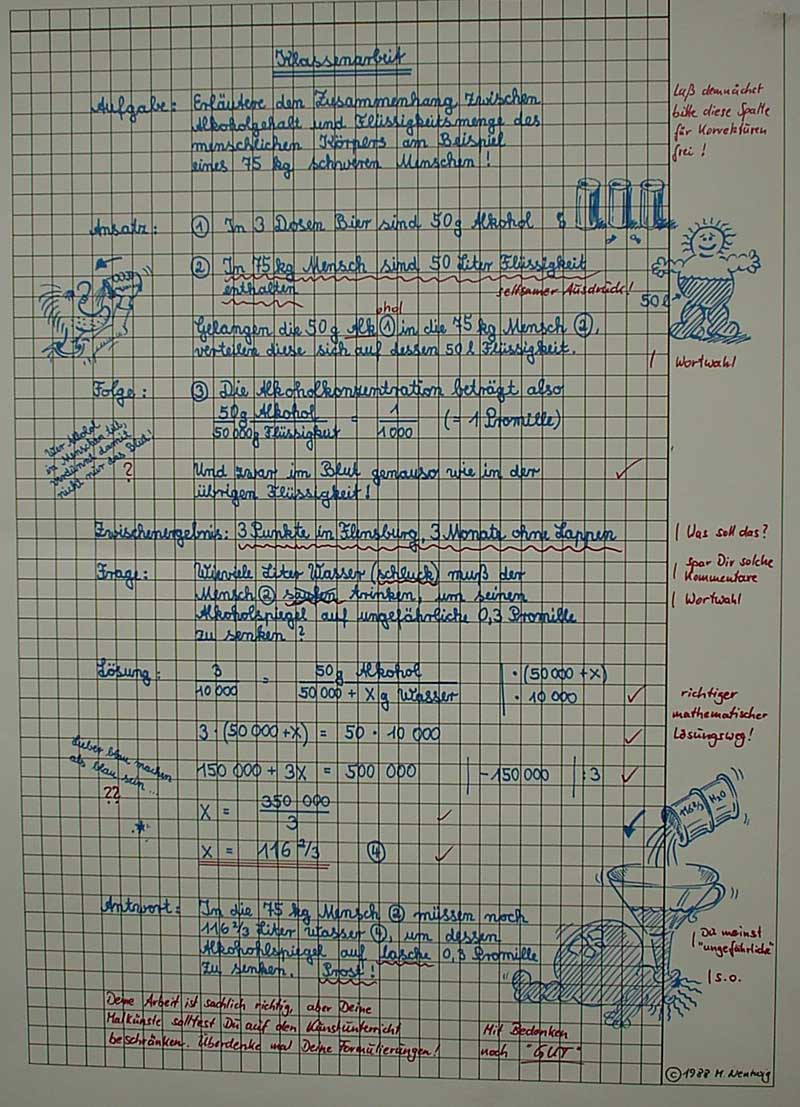 Klassenarbeit
Laß demnächst
bitte diese Spalte
für Korrektüren
frei!
Aufgabe: Erläutere den Zusammenhang zwischen
Alkoholgehalt und Flüssigkeitsmenge des
menschlichen Körpers am Beispiel
eines 75 kg schweren Menschen!
Ansatz: ① In 3 Dosen Bier sind 50g Alkohol
② In 75 kg Mensch sind 50 Liter Flüssigkeit
enthalten
seltsamer Ausdruck!
50 l
ohol
Gelangen die 50g Alk ① in die 75 kg Mensch ②,
verteilen diese sich auf dessen 50 l Flüssigkeit.
Wortwahl
Folge: ③ Die Alkoholkonzentration beträgt also
50g Alkohol / 50 000g Flüssigkeit = 1 / 1000 (= 1 Promille)
Wer Alkohol
in Menschen füllt,
verdünnt damit
nicht nur das Blut!
?
Und zwar im Blut genauso wie in der
übrigen Flüssigkeit!
Zwischenergebnis: 3 Punkte in Flensburg, 3 Monate ohne Lappen
Was soll das?
Frage: Wieviele Liter Wasser (schluck) muß der
Spar Dir solche
Kommentare
Mensch ② saufen trinken, um seinen
Wortwahl
Alkoholspiegel auf ungefährliche 0,3 Promille
zu senken?
Lösung: 3 / 10 000 = 50g Alkohol / 50 000 + X g Wasser | · (50 000 + X) | · 10 000
richtiger
mathematischer
Lösungsweg!
3 · (50 000 + X) = 50 · 10 000
150 000 + 3X = 500 000 | -150 000 | : 3
Lieber blau machen
als blau sein...
??
X = 350 000 / 3
X = 116 2/3 ④
116 2/3 H₂O
Antwort: In die 75 kg Mensch ② müssen noch
116 2/3 Liter Wasser ④, um dessen
Alkohohlspiegel auf lasche 0,3 Promille
zu senken. Prost!
Du meinst
"ungefährliche"
s.o.
Deine Arbeit ist sachlich richtig, aber Deine
Malkünste solltest Du auf den Kunstunterricht
beschränken. Überdenke mal Deine Formulierungen!
Mit Bedenken
noch "GUT"
© 1988 M.